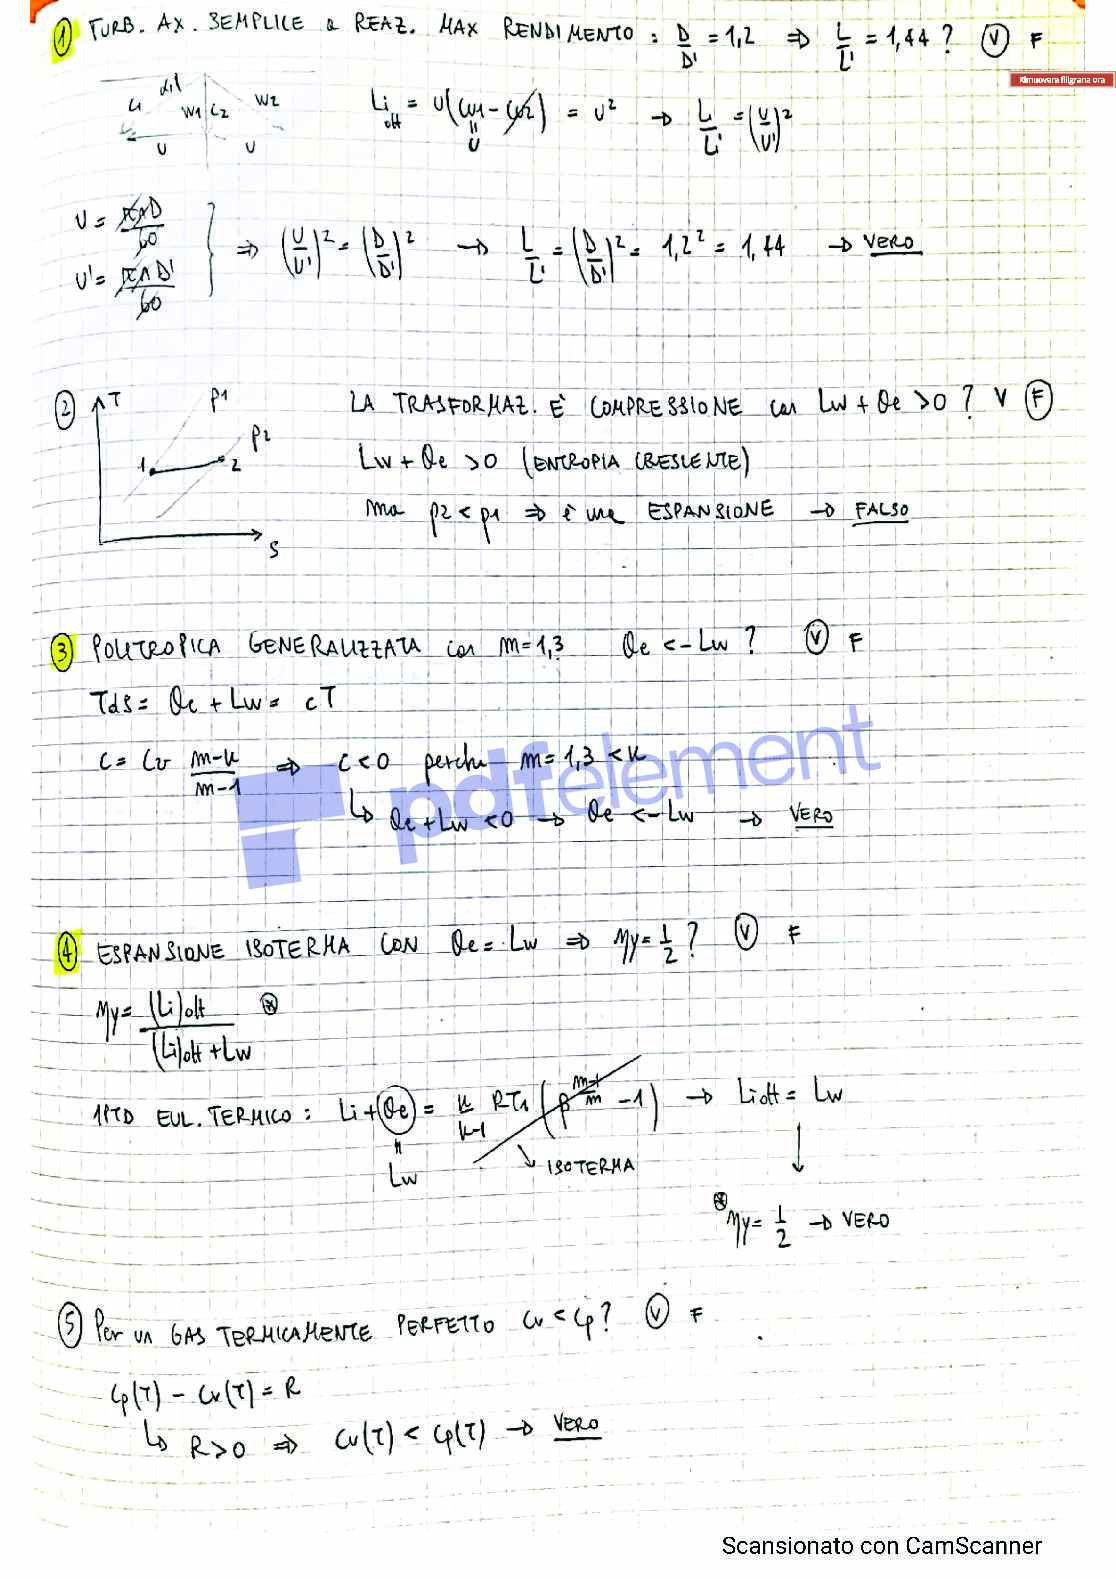 ① TURB. AX. SEMPLICE a REAZ. MAX RENDIMENTO : D/D' = 1,2 ⇒ L/L' = 1,44 ? Ⓥ F
Rimuovere filigrana ora
C1 α1 W1 C2 W2
U U
Li ott = U(Cu1 - Cu2) = U² → L/L' = (U/U')²
U
U = πnD/60
U' = πnD'/60
⇒ (U/U')² = (D/D')² → L/L' = (D/D')² = 1,2² = 1,44 → VERO
② T p1 LA TRASFORMAZ. È COMPRESSIONE con Lw + Qe >0 ? V Ⓕ
p2
1 2 Lw + Qe >0 (ENTROPIA CRESCENTE)
ma p2 < p1 ⇒ è una ESPANSIONE → FALSO
S
③ POLITROPICA GENERALIZZATA con m=1,3 Qe <-Lw ? Ⓥ F
TdS = Qe + Lw = cT
C = Cv (m-k)/(m-1) ⇒ C<0 perché m=1,3 <k
↳ Qe + Lw <0 → Qe <-Lw → VERO
pdfelement
④ ESPANSIONE ISOTERMA CON Qe = Lw ⇒ ηy = 1/2 ? Ⓥ F
ηy = (Li)ott / ((Li)ott + Lw) ⊛
1PTD EUL. TERMICO : Li + Qe = k/(k-1) RT1 (β^((m-1)/m) - 1) → Li ott = Lw
Lw ↘ ISOTERMA
⊛ ηy = 1/2 → VERO
⑤ Per un GAS TERMICAMENTE PERFETTO Cv < Cp ? Ⓥ F
Cp(T) - Cv(T) = R
↳ R>0 ⇒ Cv(T) < Cp(T) → VERO
Scansionato con CamScanner